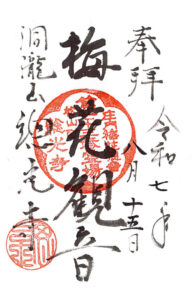 奉拝
令和七年
八月十五日
梅花観音
洞瀧山
總光寺